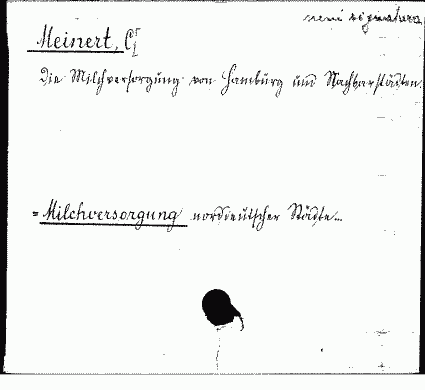 není signatura
Meinert, C[
Die Milchversorgung von Hamburg und Nachbarstädten.
= Milchversorgung norddeutscher Städte...